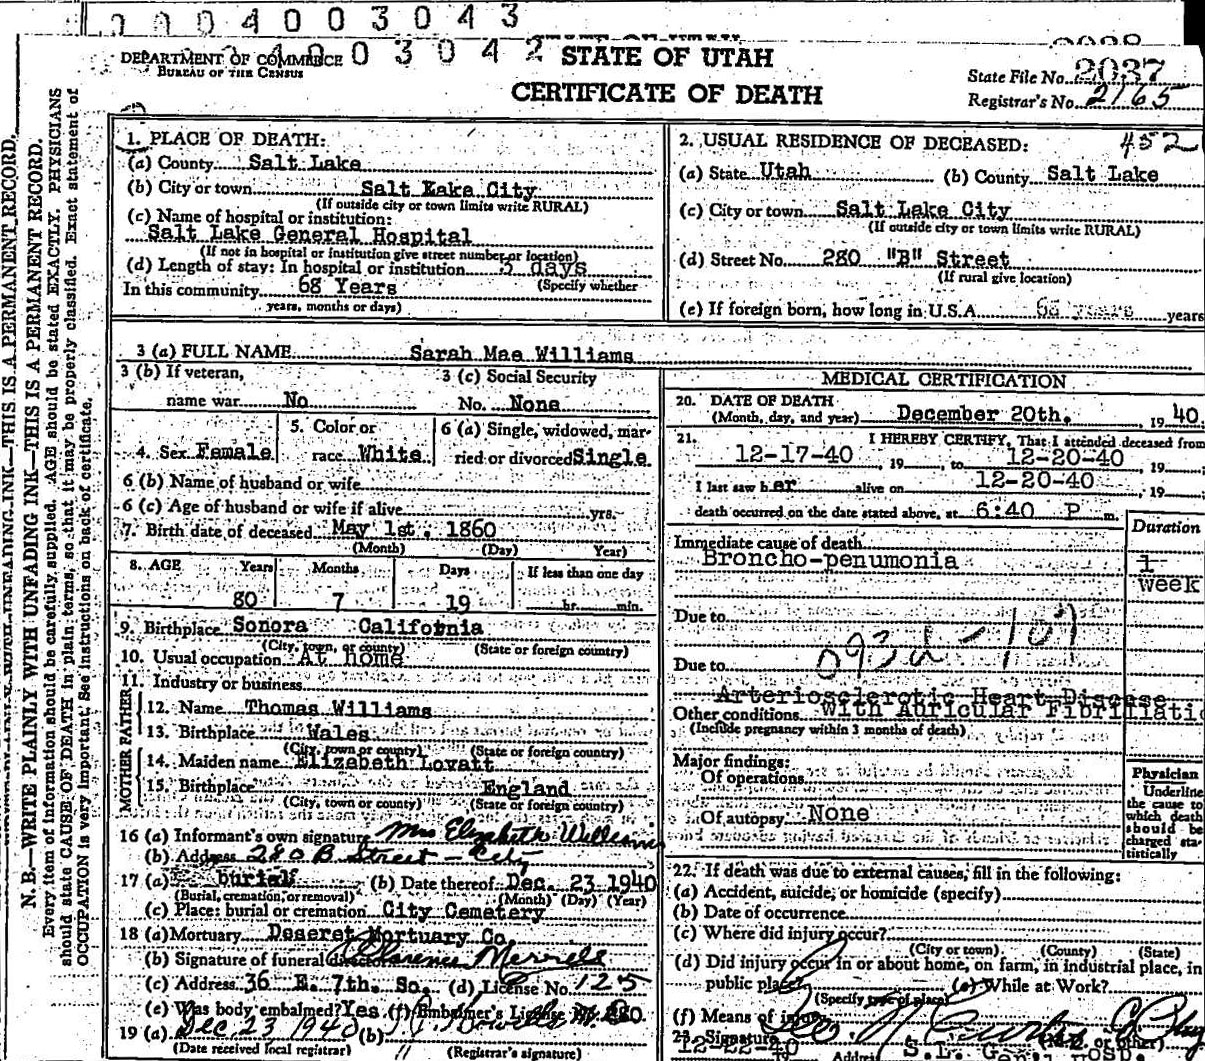 0004003043
2038
DEPARTMENT OF COMMERCE
BUREAU OF THE CENSUS
0 3 0 4 2
STATE OF UTAH
CERTIFICATE OF DEATH
State File No. 2037
Registrar's No. 2165
N. B.—WRITE PLAINLY WITH UNFADING INK—THIS IS A PERMANENT RECORD.
Every item of information should be carefully supplied. AGE should be stated EXACTLY. PHYSICIANS
should state CAUSE OF DEATH in plain terms, so that it may be properly classified. Exact statement of
OCCUPATION is very important. See instructions on back of certificate.
1. PLACE OF DEATH:
(a) County Salt Lake
(b) City or town Salt Lake City
(If outside city or town limits write RURAL)
(c) Name of hospital or institution:
Salt Lake General Hospital
(If not in hospital or institution give street number or location)
(d) Length of stay: In hospital or institution 3 days
In this community 68 Years (Specify whether
years, months or days)
2. USUAL RESIDENCE OF DECEASED: 452
(a) State Utah (b) County Salt Lake
(c) City or town Salt Lake City
(If outside city or town limits write RURAL)
(d) Street No. 280 "B" Street
(If rural give location)
(e) If foreign born, how long in U.S.A. 68 years years
3 (a) FULL NAME Sarah Mae Williams
3 (b) If veteran, name war No
3 (c) Social Security No. None
4. Sex Female
5. Color or race White
6 (a) Single, widowed, married or divorced Single
6 (b) Name of husband or wife
6 (c) Age of husband or wife if alive yrs.
7. Birth date of deceased May 1st. 1860
(Month) (Day) Year)
8. AGE Years Months Days If less than one day
80 7 19 hr. min.
9. Birthplace Sonora California
(City, town, or county) (State or foreign country)
10. Usual occupation At home
11. Industry or business
FATHER
12. Name Thomas Williams
13. Birthplace Wales
(City, town or county) (State or foreign country)
MOTHER
14. Maiden name Elizabeth Lovatt
15. Birthplace England
(City, town or county) (State or foreign country)
16 (a) Informant's own signature Mrs Elizabeth Williams
(b) Address 280 B Street - City
17 (a) burial (b) Date thereof Dec. 23 1940
(Burial, cremation, or removal) (Month) (Day) (Year)
(c) Place: burial or cremation City Cemetery
18 (a) Mortuary Deseret Mortuary Co.
(b) Signature of funeral director Clarence Merrell
(c) Address 36 E. 7th. So. (d) License No. 125
(e) Was body embalmed? Yes (f) Embalmer's License No. 280
19 (a) Dec 23 1940 (b)
(Date received local registrar) (Registrar's signature)
MEDICAL CERTIFICATION
20. DATE OF DEATH
(Month, day, and year) December 20th. , 1940.
21. I HEREBY CERTIFY, That I attended deceased from
12-17-40 , 19 , to 12-20-40 , 19
I last saw her alive on 12-20-40 , 19
death occurred on the date stated above, at 6:40 P m.
Duration
Immediate cause of death
Broncho-penumonia 1 week
Due to
093d-107
Due to
Arteriosclerotic Heart Disease
Other conditions with Auricular Fibrillatio
(Include pregnancy within 3 months of death)
Major findings:
Of operations
Of autopsy None
Physician
Underline
the cause to
which death
should be
charged sta-
tistically
22. If death was due to external causes, fill in the following:
(a) Accident, suicide, or homicide (specify)
(b) Date of occurrence
(c) Where did injury occur?
(City or town) (County) (State)
(d) Did injury occur in or about home, on farm, in industrial place, in
public place? (e) While at Work?
(Specify type of place)
(f) Means of injury
23. Signature (M.D. or other)
12-22-40 Address S.L. Gen.